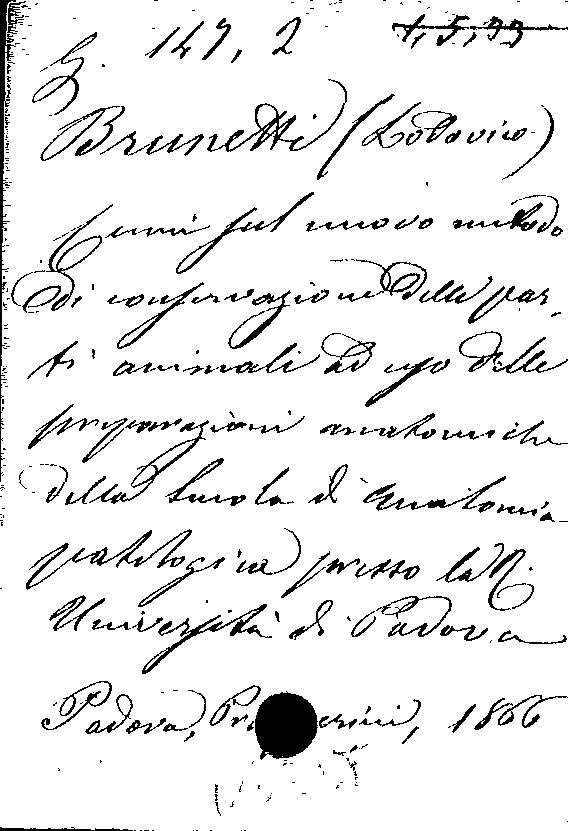 G. 147, 2 1, 5, 33
Brunetti (Lodovico)
Cenni sul nuovo metodo
di conservazione delle par-
ti animali ad uso delle
preparazioni anatomiche
della Scuola di Anatomia
patologica presso la R.
Università di Padova
Padova, 1866